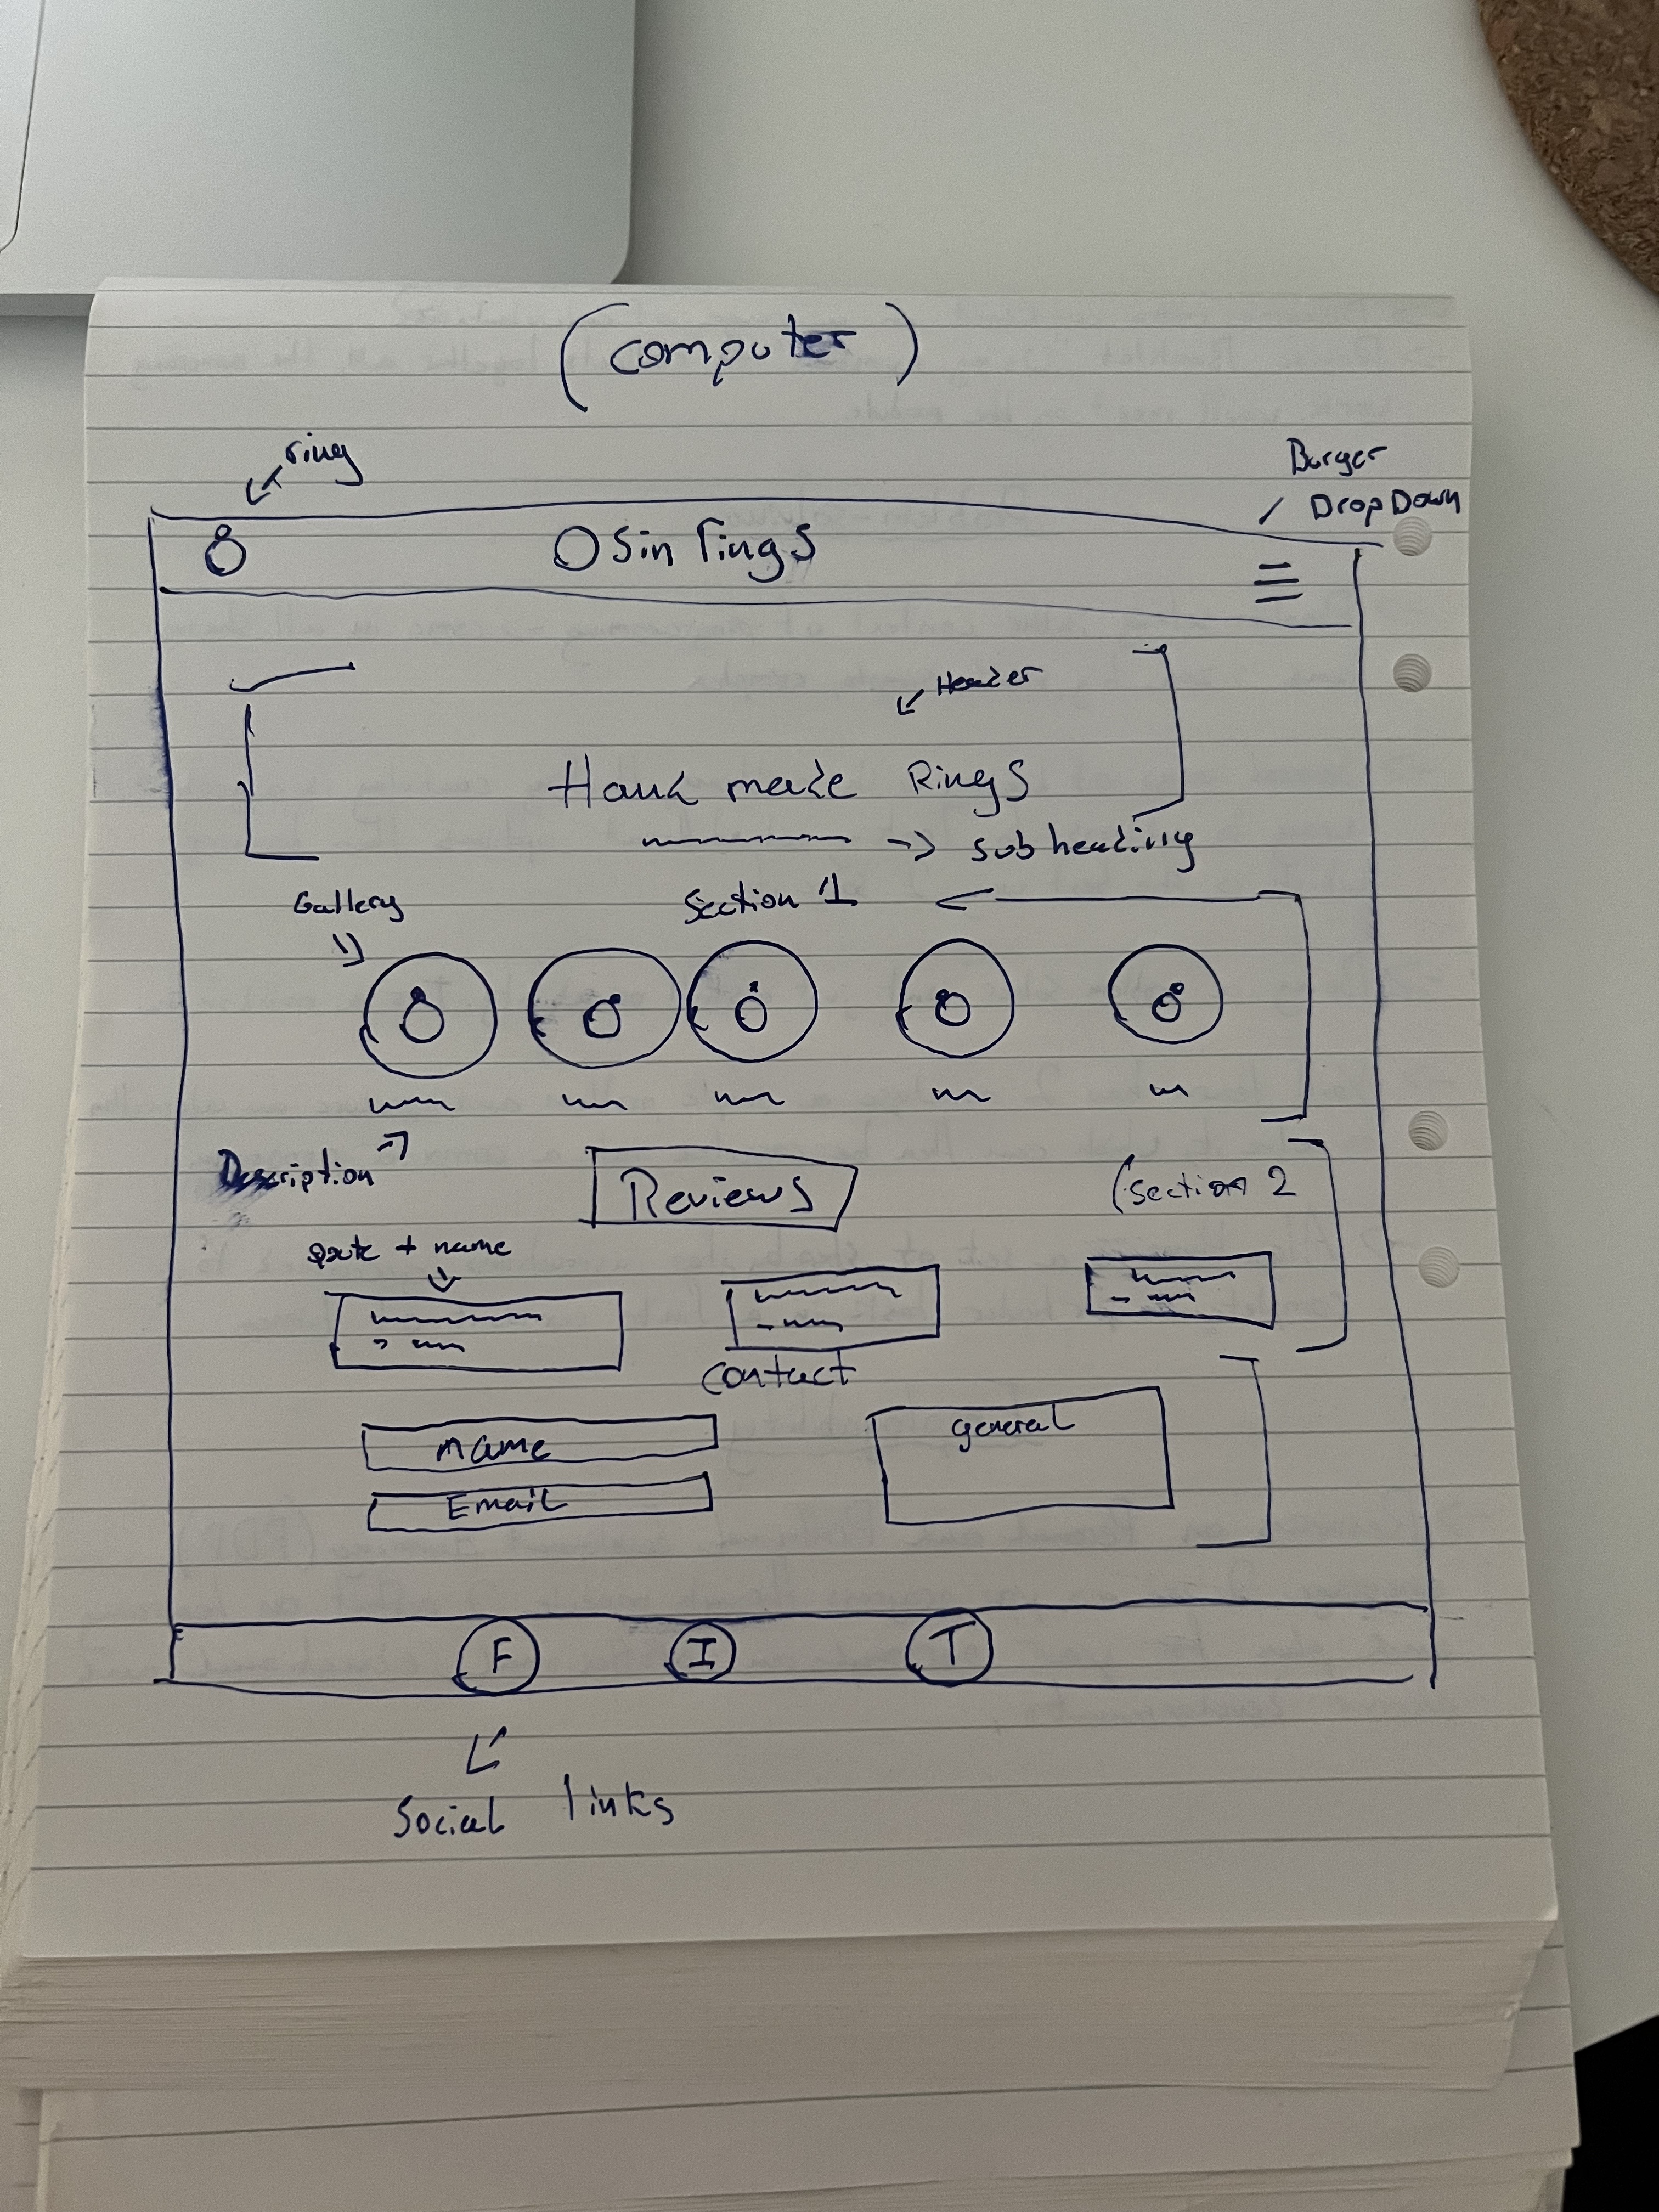 (computer)
ring
Burger
/ DropDown
Osin rings
Header
Hand made Rings
→ sub heading
Gallery
Section 1
Description
Reviews
(section 2
+ name
Contact
name
general
Email
F
I
T
Social links